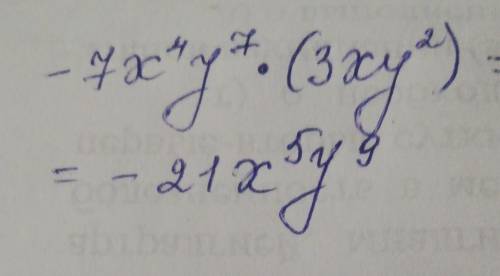 -7x⁴y⁷·(3xy²) =
= -21x⁵y⁹